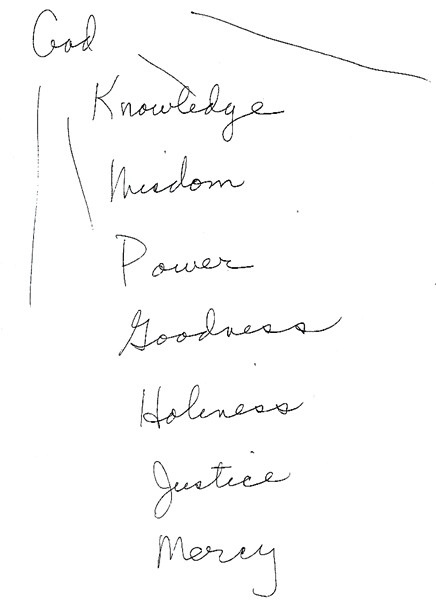 God
Knowledge
Wisdom
Power
Goodness
Holiness
Justice
Mercy